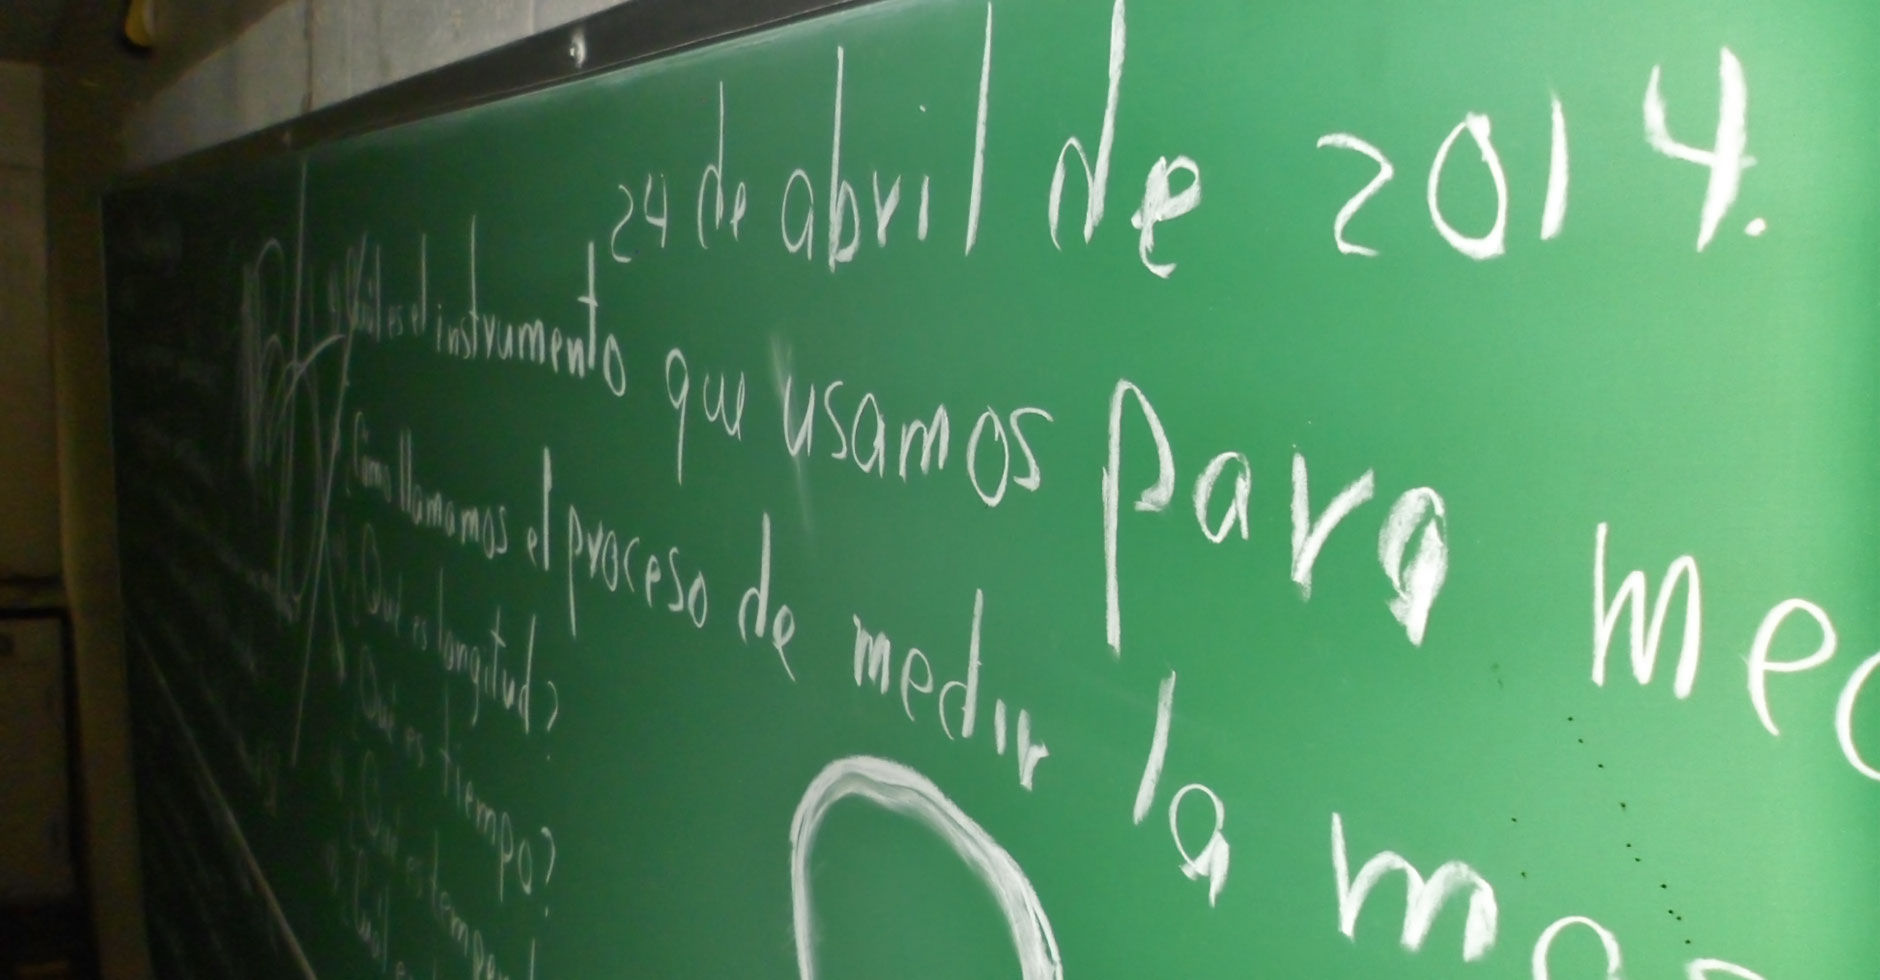 24 de abril de 2014.
Cuál es el instrumento que usamos para med
Cómo llamamos el proceso de medir la ma
Que es longitud?
Que es tiempo?
Que es temper
Cuál